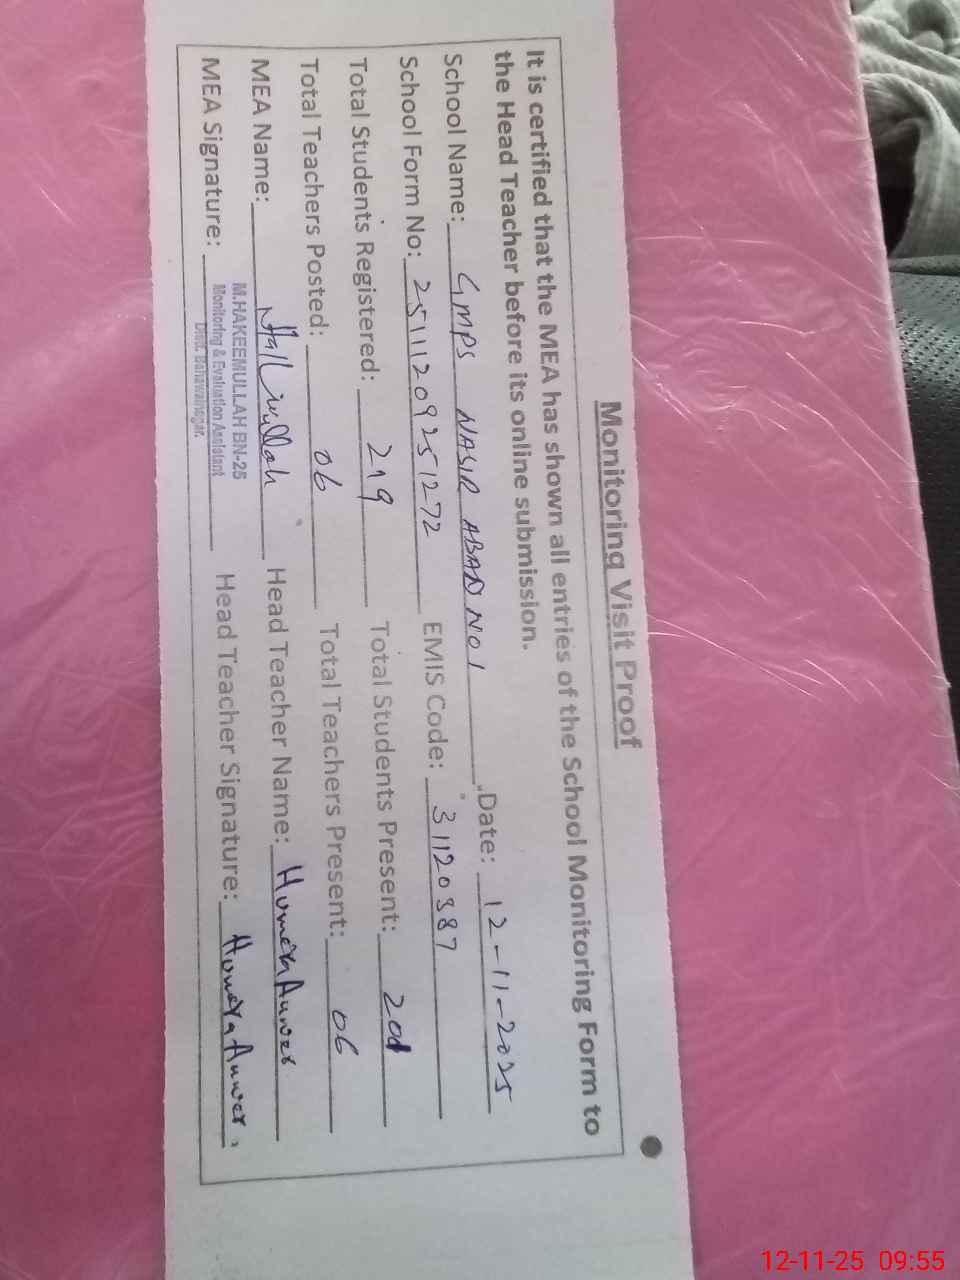 Monitoring Visit Proof
It is certified that the MEA has shown all entries of the School Monitoring Form to
the Head Teacher before its online submission.
School Name: GMPS NASIR ABAD NO 1 Date: 12-11-2025
School Form No: 25111209251272 EMIS Code: 31120387
Total Students Registered: 219 Total Students Present: 201
Total Teachers Posted: 06 Total Teachers Present: 06
MEA Name: Head Teacher Name: Humera Anwer
MEA Signature: Head Teacher Signature: Humera Anwer
M.HAKEEMULLAH BN-25
Monitoring & Evaluation Assistant
Distt. Bahawalnagar.
12-11-25 09:55